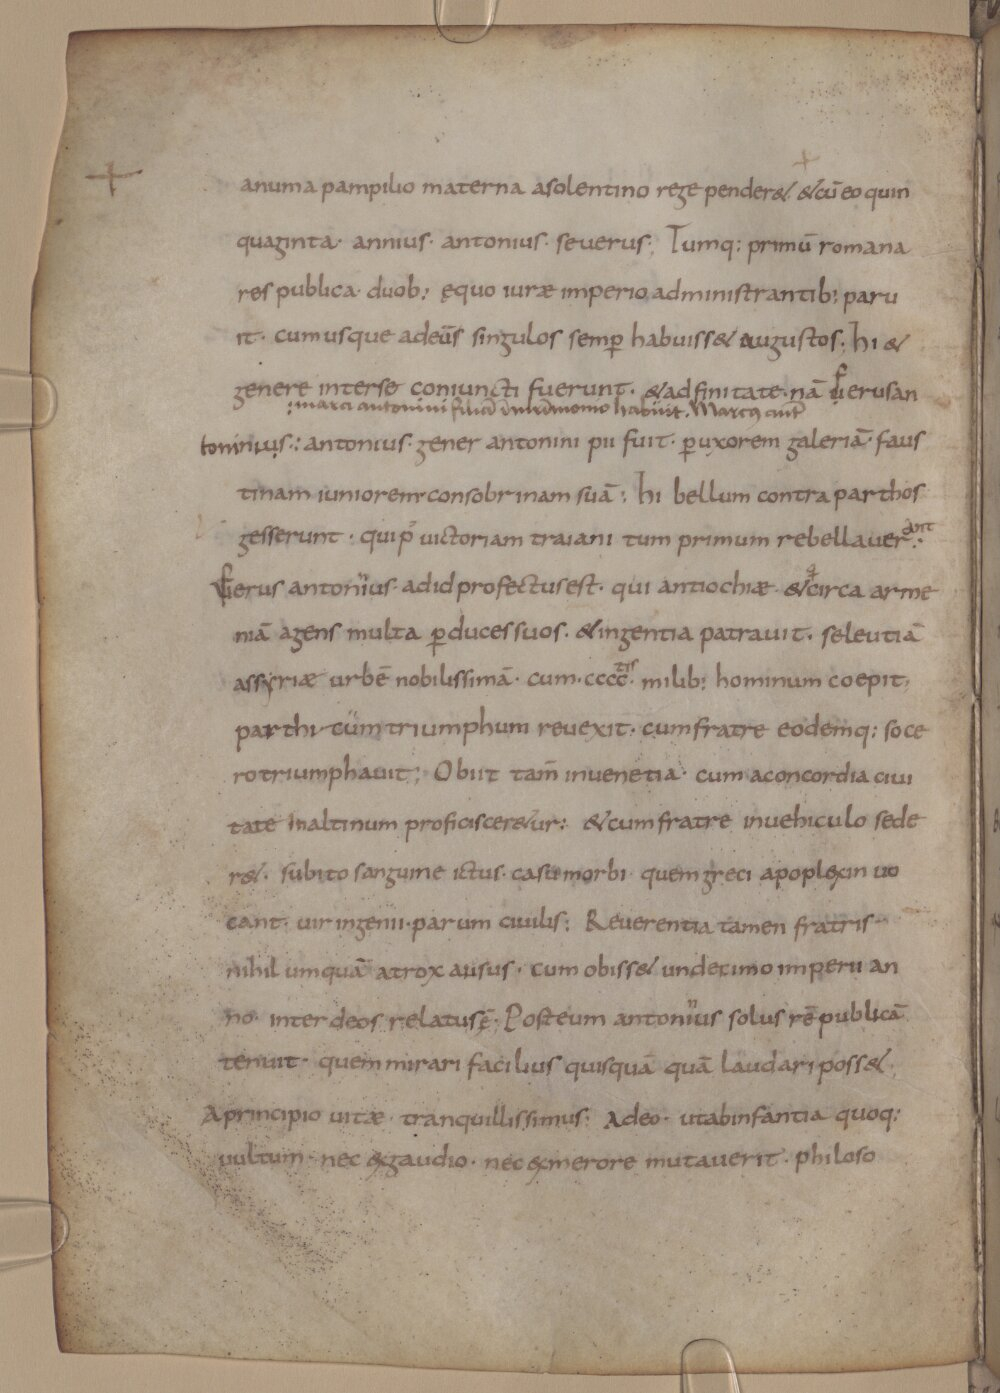 anuma pampilio materna asolentino rege pender& &cū eo quin
quaginta· annius· antonius· seuerus; Tumq: primū romana
res publica· duob; ęquo iuræ imperio administrantib; paru
it· cum usque adeūs singulos semp̄ habuiss& augustos; hi &
genere interse coniuncti fuerunt· &adfinitate· nā uerus an
marci antonini filiā in matrimonio habuit. Marcus autē
toninus; antonius· gener antonini pii fuit· p̄ uxorem galeriā· faus
tinam iuniorem consobrinam suā; hi bellum contra parthos
gesserunt· qui p' uictoriam traiani tum primum rebellauerant·
Uerus antonius· ad id profectus est· qui antiochiæ &circa arme
niā agens multa p̄duces suos· &ingentia patrauit· seleutiā
assyriæ urbē nobilissimā· cum· cccctis· milib; hominum coepit,
parthicum triumphum reuexit· cum fratre eodemq: soce
ro triumphauit; Obiit tam̄ inuenetia· cum aconcordia ciui
tate in altinum proficiscer&ur; &cum fratre inuehiculo sede
r&· subito sanguine ictus· casu morbi· quem greci apoplexin uo
cant· uir ingenii· parum ciuilis; Reuerentia tamen fratris
nihil umquā atrox ausus· cum obiss& undecimo imperii an
no· inter deos relatus ē· Post eum antonius solus rē publicā
tenuit· quem mirari facilius quisquā quā laudari poss&·
A principio uitæ· tranquillissimus; Adeo· ut ab infantia quoq;
uultum· nec exgaudio· nec exmerore mutauerit· philoso